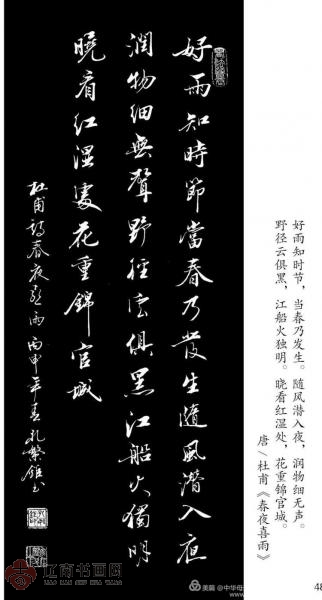 好雨知時節當春乃發生隨風潛入夜
潤物細無聲野徑雲俱黑江船火獨明
曉看紅濕處花重錦官城
杜甫詩春夜喜雨丙申年春孔繁錐书
好雨知时节，当春乃发生。随风潜入夜，润物细无声。
野径云俱黑，江船火独明。晓看红湿处，花重锦官城。
唐/杜甫《春夜喜雨》
辽南书画网
美篇@中华母
48